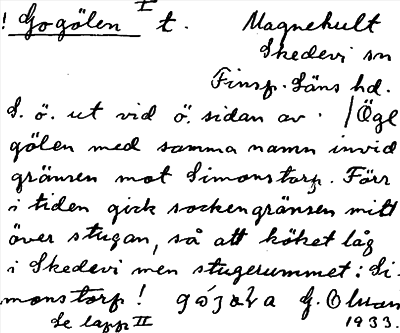 ! Gogölen I t. Magnehult
Skedevi sn
Finsp. Läns hd.
L. ö. ut vid ö. sidan av · /Ögl
gölen med samma namn invid
gränsen mot Simonstorp. Förr
i tiden gick sockengränsen mitt
över stugan, så att köket låg
i Skedevi men stugerummet i Si-
monstorp! G. Olsson
Se lapp II 1933.